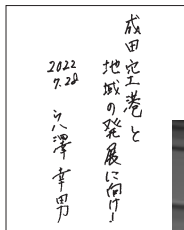 成田空港と
地域の発展に向け!
2022
7.28
宍澤幸男